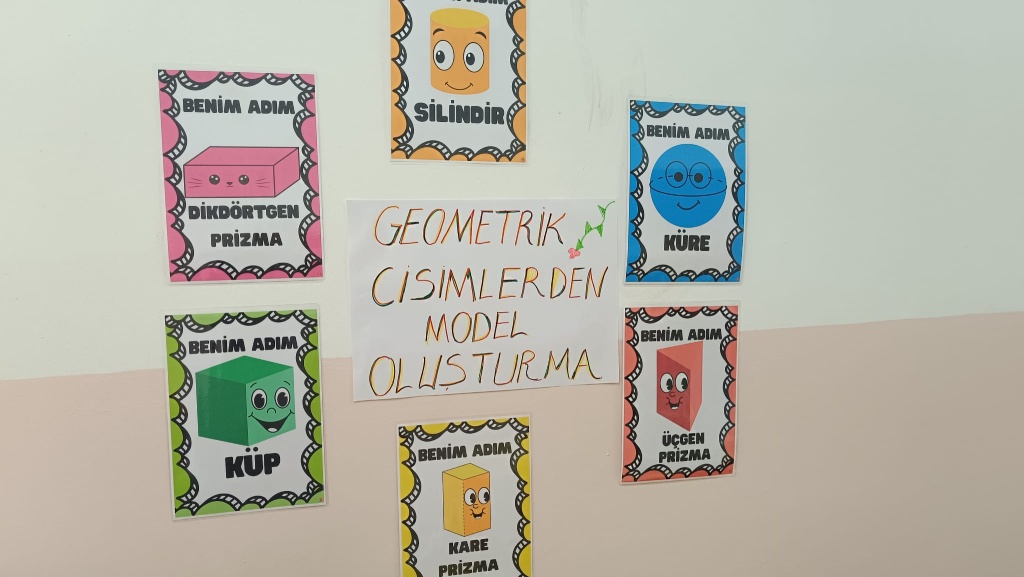 BENİM ADIM
SİLİNDİR
BENİM ADIM
DİKDÖRTGEN
PRİZMA
BENİM ADIM
KÜRE
GEOMETRİK
CİSİMLERDEN
MODEL
OLUŞTURMA
BENİM ADIM
KÜP
BENİM ADIM
ÜÇGEN
PRİZMA
BENİM ADIM
KARE
PRİZMA